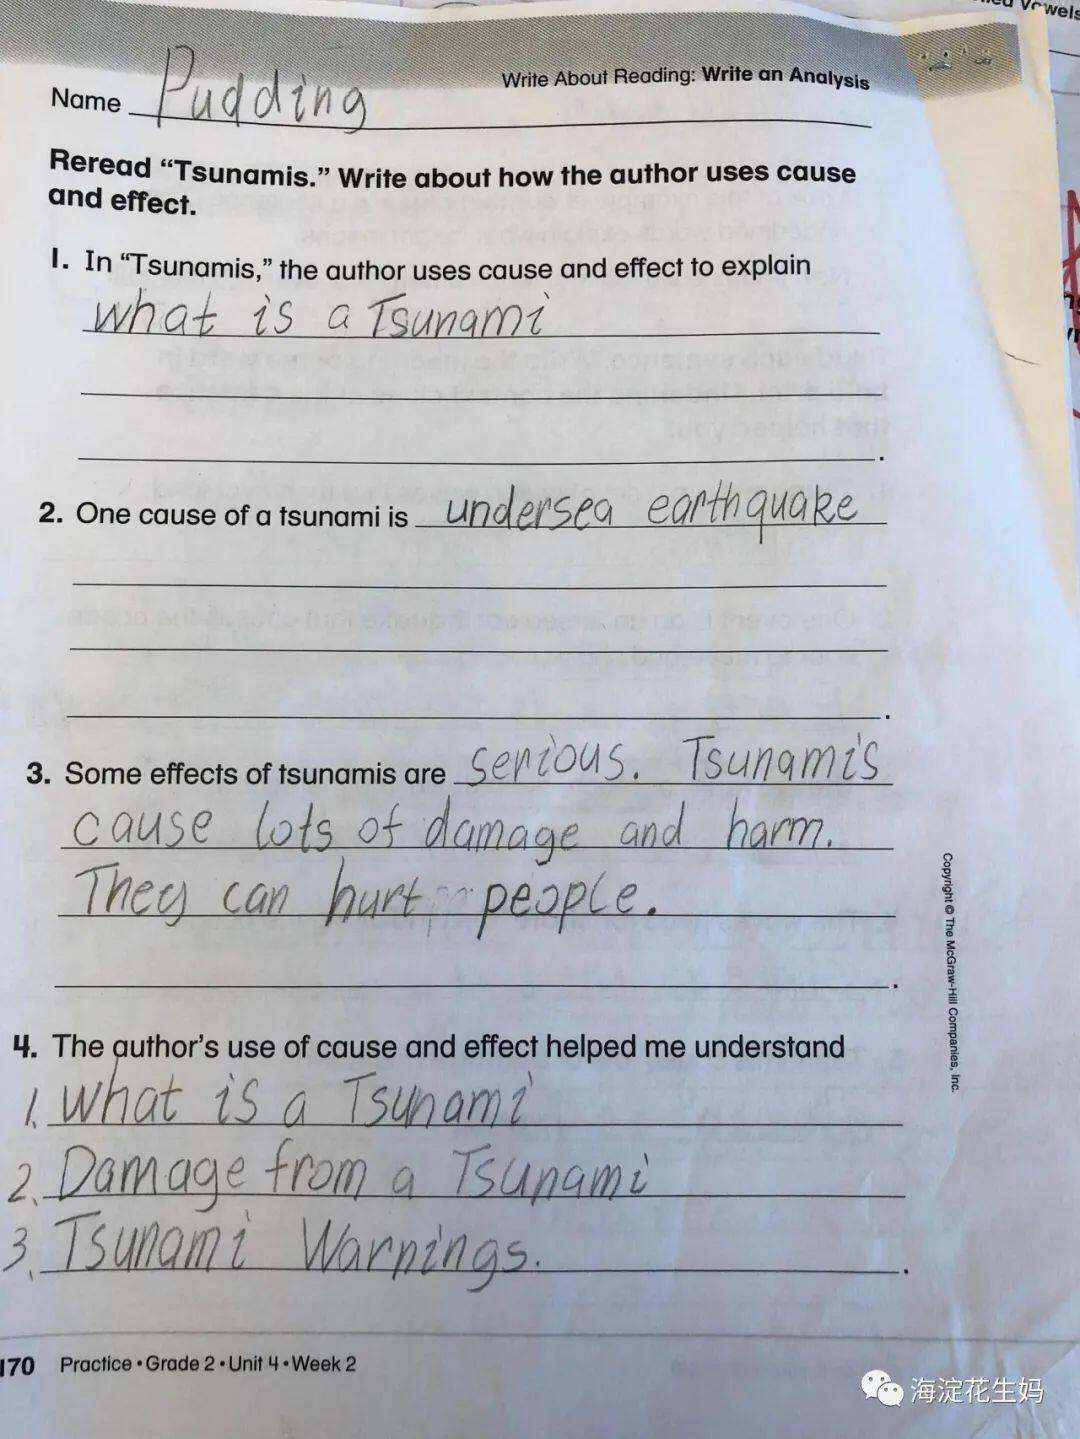 Vowels
Write About Reading: Write an Analysis
Name Pudding
Reread “Tsunamis.” Write about how the author uses cause
and effect.
1. In “Tsunamis,” the author uses cause and effect to explain
what is a Tsunami
.
2. One cause of a tsunami is undersea earthquake
.
3. Some effects of tsunamis are serious. Tsunamis
cause lots of damage and harm.
They can hurt people.
.
4. The author’s use of cause and effect helped me understand
1. What is a Tsunami
2. Damage from a Tsunami
3. Tsunami Warnings.
.
Copyright © The McGraw-Hill Companies, Inc.
170 Practice • Grade 2 • Unit 4 • Week 2
海淀花生妈